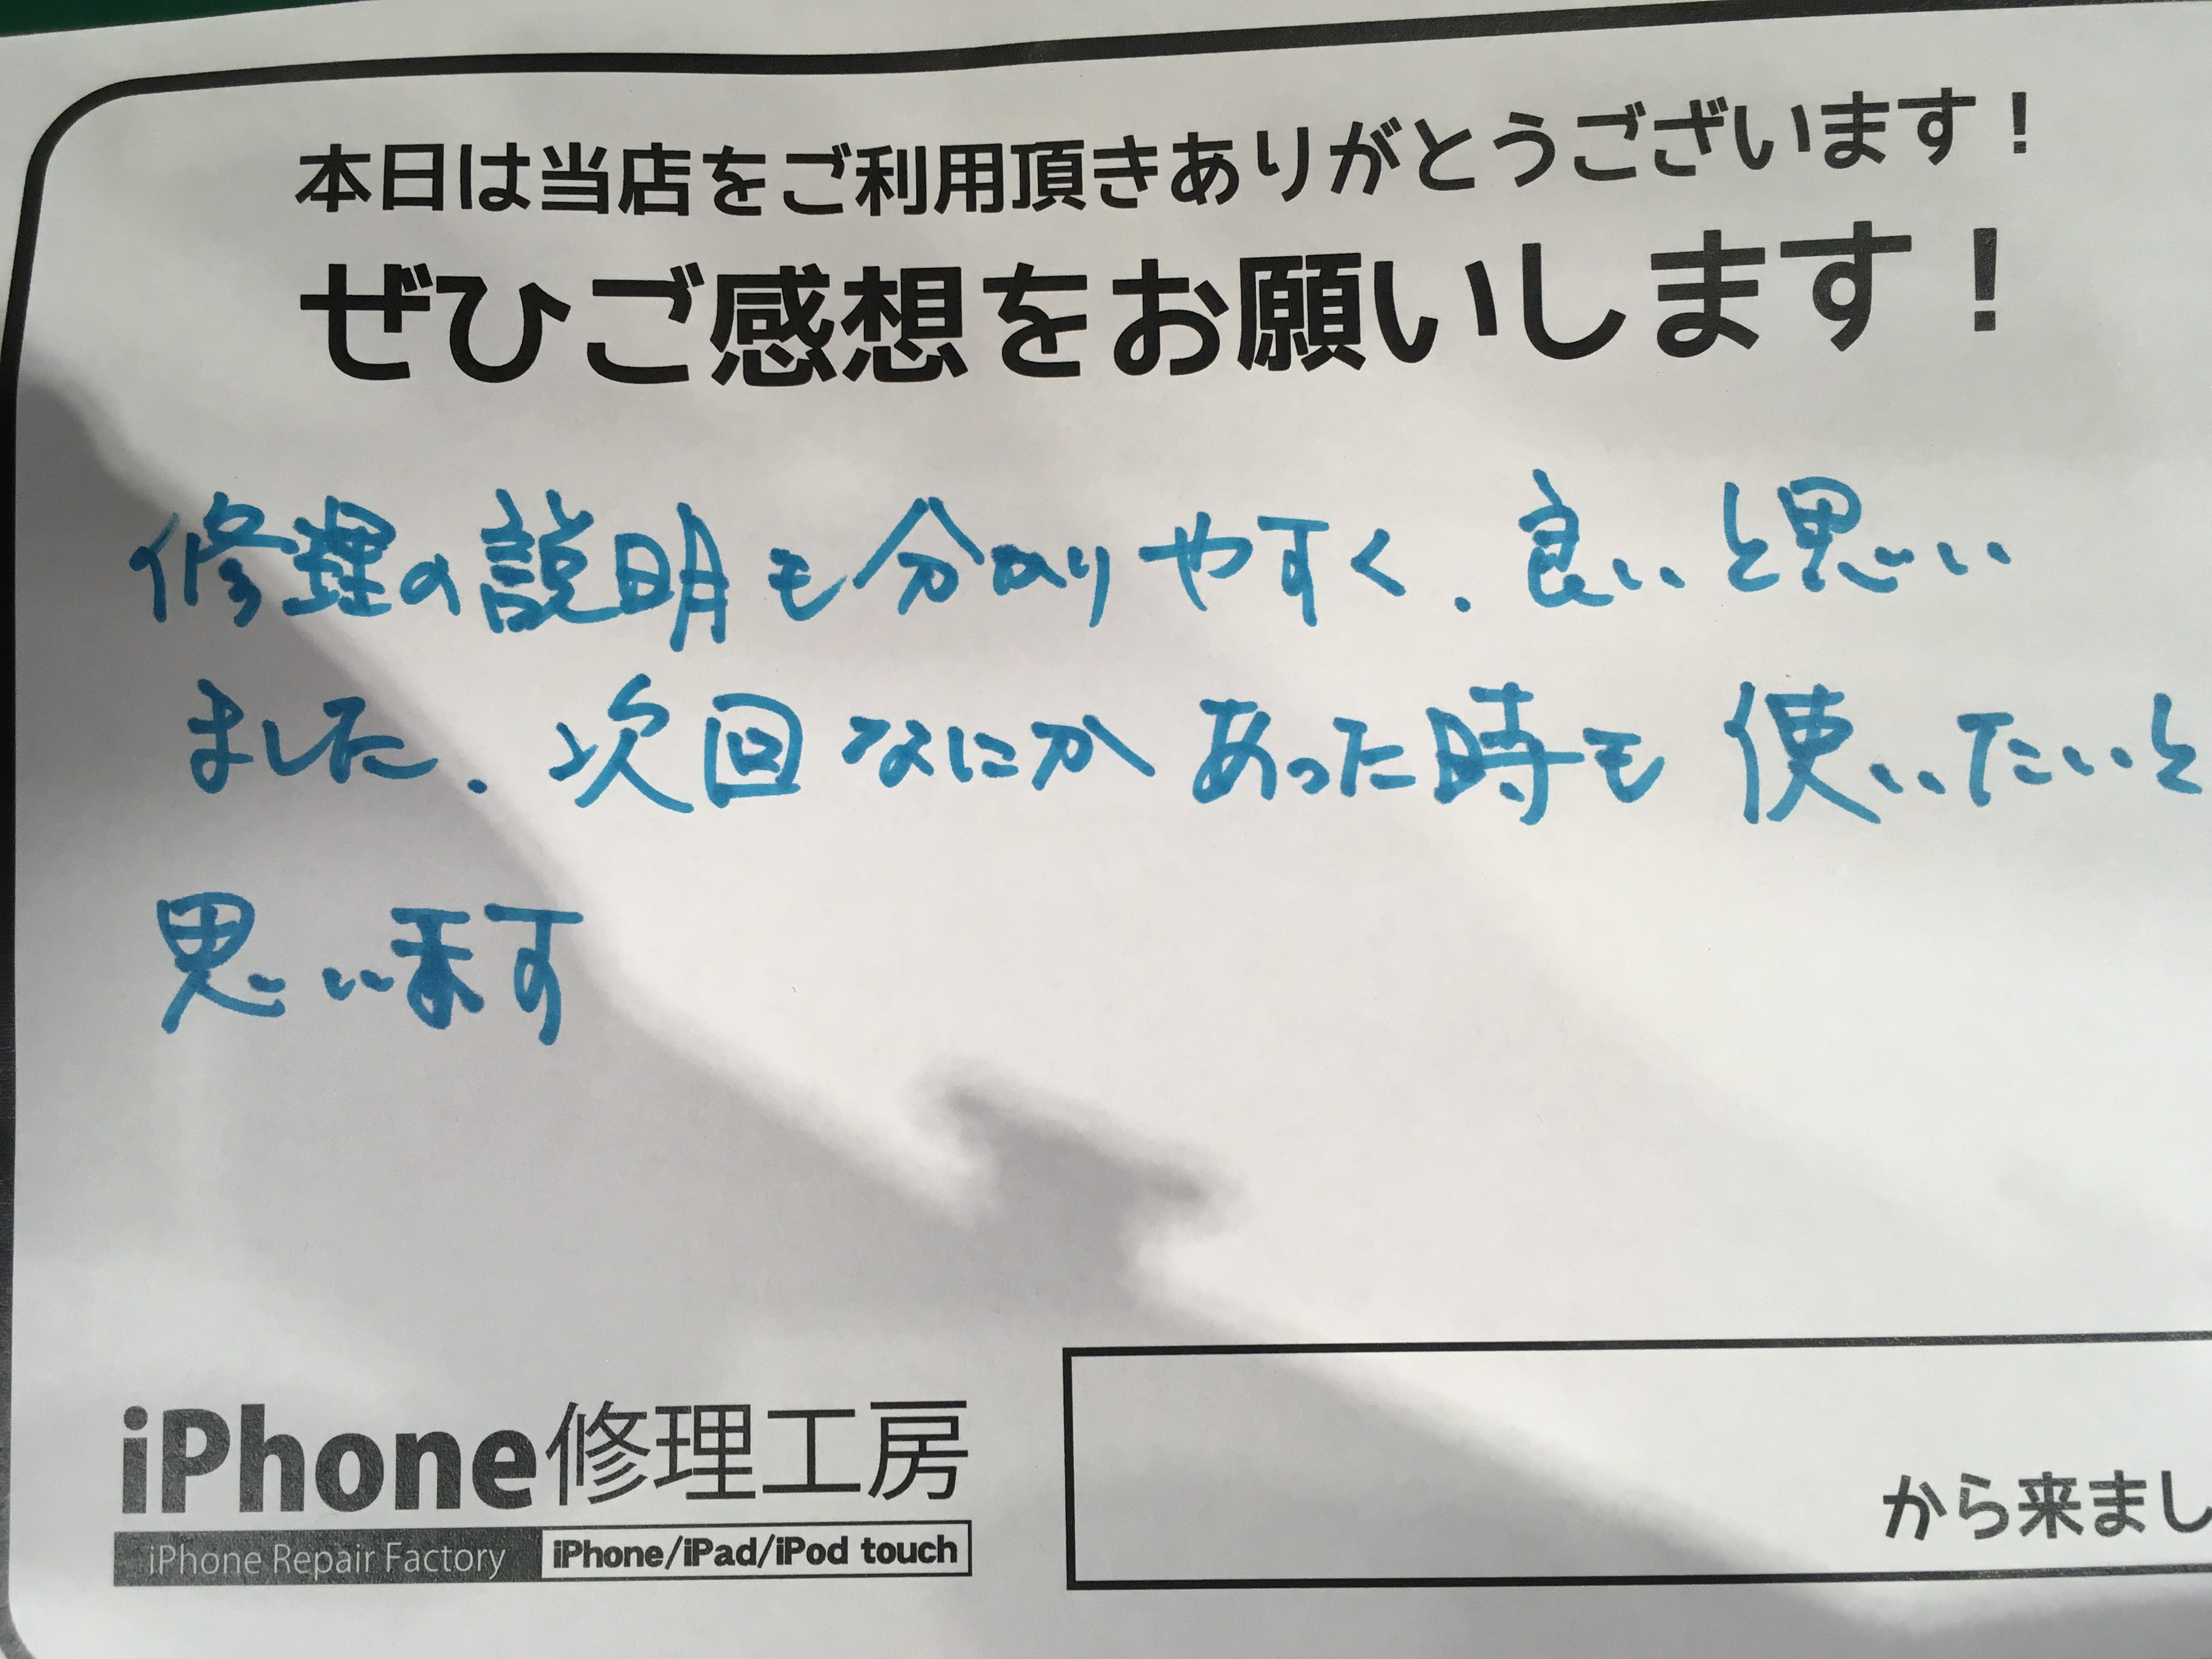 本日は当店をご利用頂きありがとうございます！
ぜひご感想をお願いします！
修理の説明も分かりやすく．良いと思い
ました．次回なにかあった時も使いたいと
思います
iPhone修理工房
iPhone Repair Factory iPhone/iPad/iPod touch
から来まし